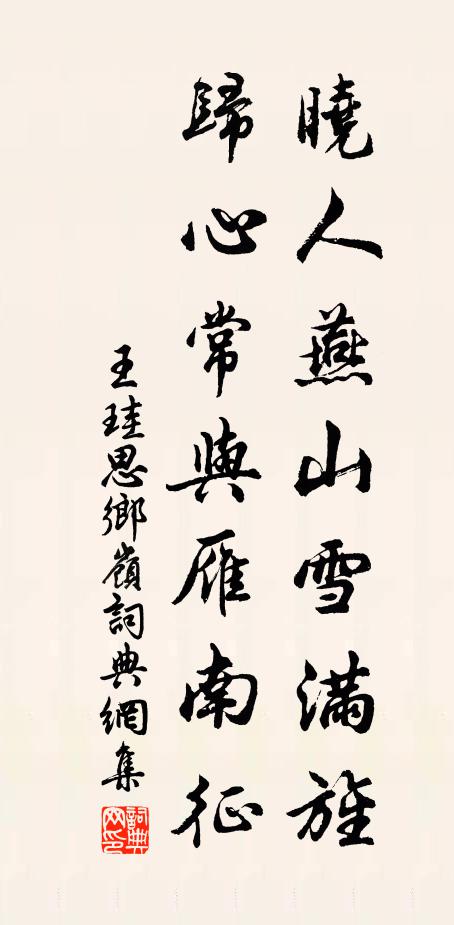 曉人燕山雪滿旌
歸心常與雁南征
王珪思鄉嶺詞典網集
詞典網印